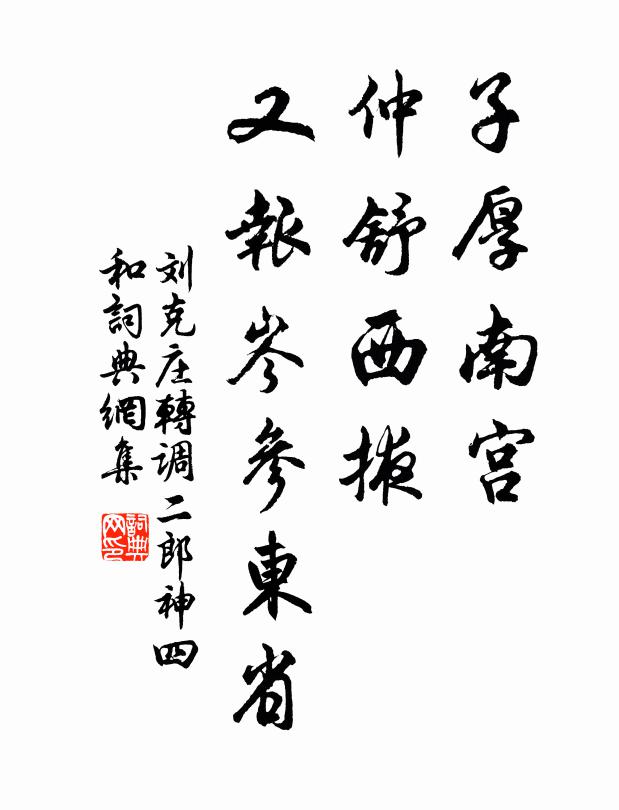 子厚南宫
仲舒西掖
又報岑參東省
刘克庄轉调二郎神四
和詞典網集
詞典
网印